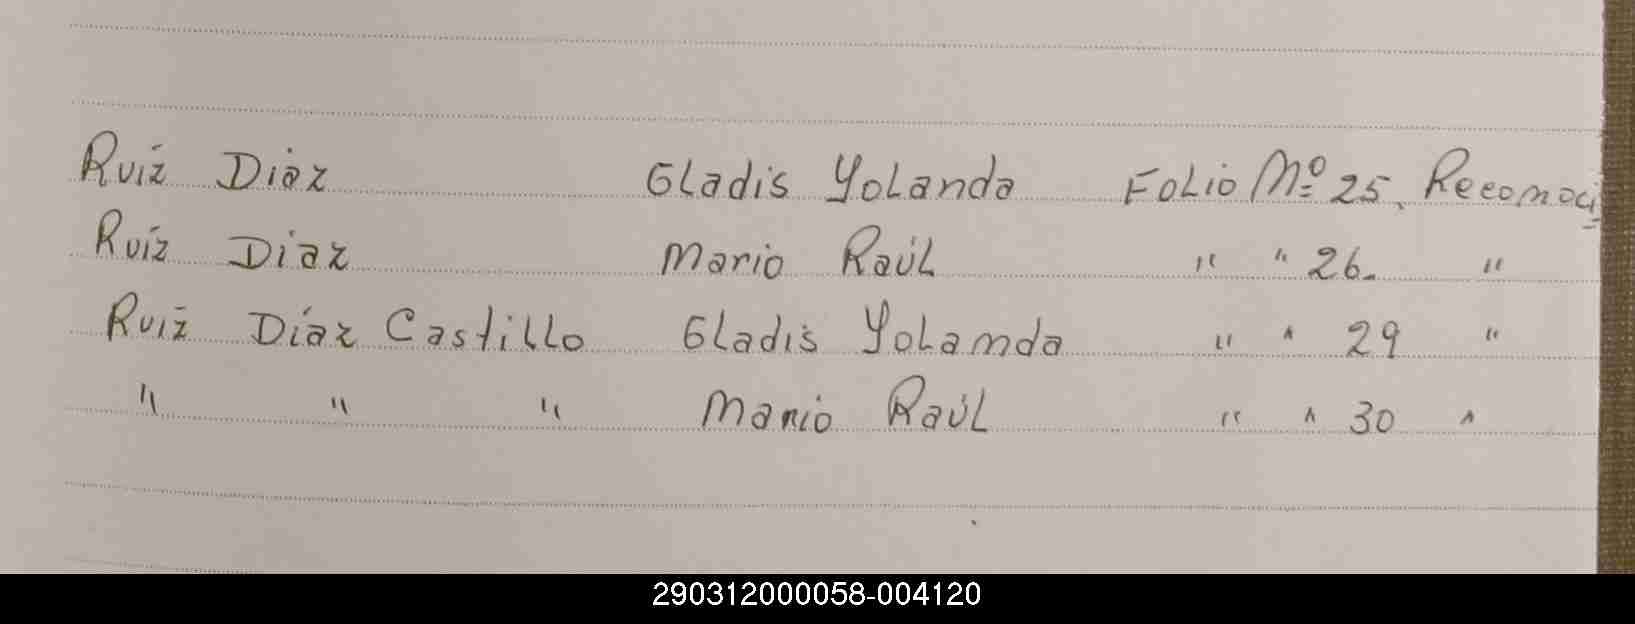 Ruiz Diaz Gladis Yolanda Folio Nº 25. Reconoci
Ruiz Diaz Mario Raúl " " 26. "
Ruiz Díaz Castillo Gladis Yolanda " " 29 "
" " " Mario Raúl " " 30 "
290312000058-004120